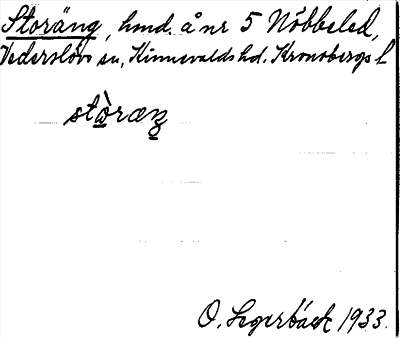 Storäng, hmd. å nr 5 Nöbbeled,
Vederslövs sn, Kinnevalds hd. Kronobergs l
stòræŋ
O. Segerbäck 1933.